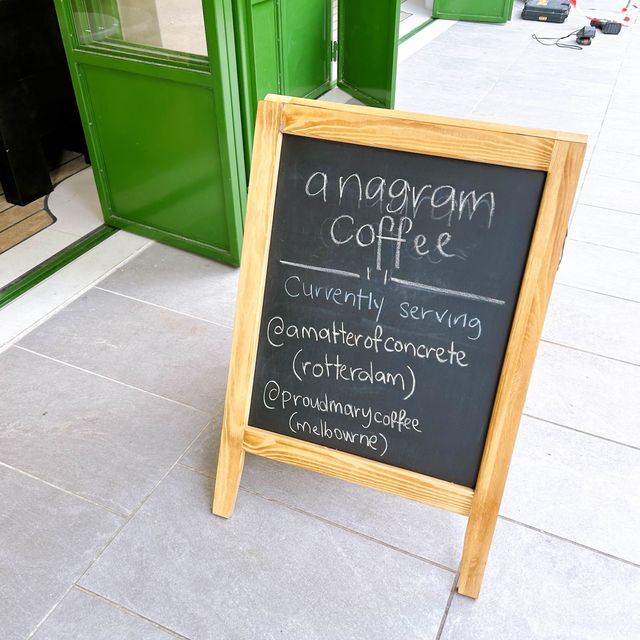 anagram
coffee
Currently serving
@amatterofconcrete
(rotterdam)
@proudmarycoffee
(melbourne)